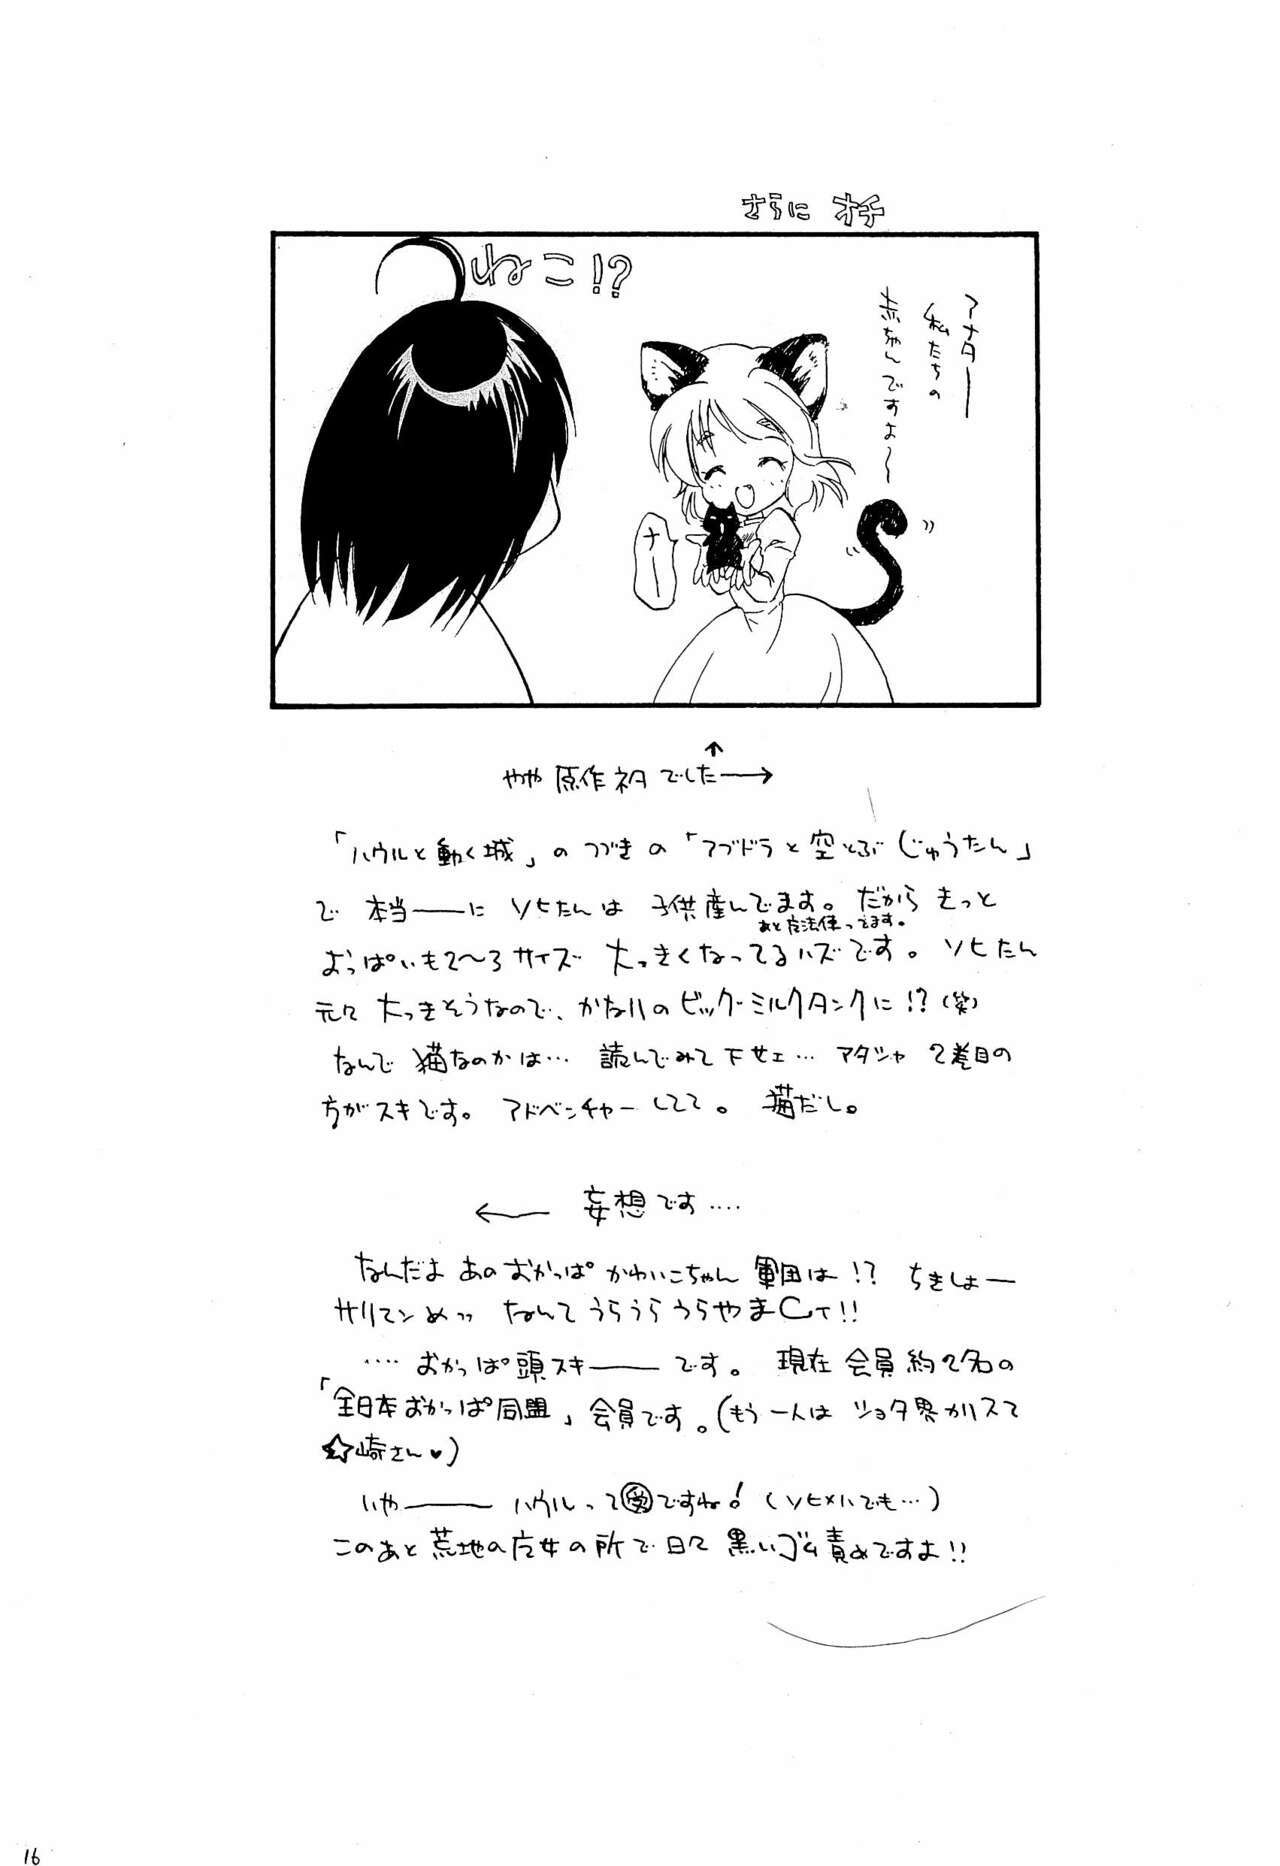 さらに オチ
ねこ!?
アナター
私たちの
赤ちゃんですよ〜
ナー
↑
やや原作ネタでした→
「ハウルと動く城」のつづきの「アブドラと空とぶじゅうたん」
で 本当——に ソヒたんは 子供産んでます。だから きっと
あと魔法使ってます。
おっぱいも2〜3サイズ 大っきくなってるハズです。ソヒたん
元々 大っきそうなので、かなりのビッグ・ミルクタンクに!?(笑)
なんで 猫なのかは… 読んでみて下せェ… アタシャ 2巻目の
方がスキです。アドベンチャーしてて。猫だし。
← 妄想です‥‥
なんだよ あのおかっぱ かわいこちゃん 軍団は!? ちきしょー
サリマンめッッ なんて うらうらうらやまCィ!!
‥‥ おかっぱ頭スキ——です。 現在 会員約2名の
「全日本おかっぱ同盟」会員です。(もう一人は ショタ界カリスマ
☆崎さん♥)
いや——— ハウルって㊤ですね!(ソヒメハでも…)
このあと 荒地の魔女の所で 日々 黒いゴム責めですよ!!
16